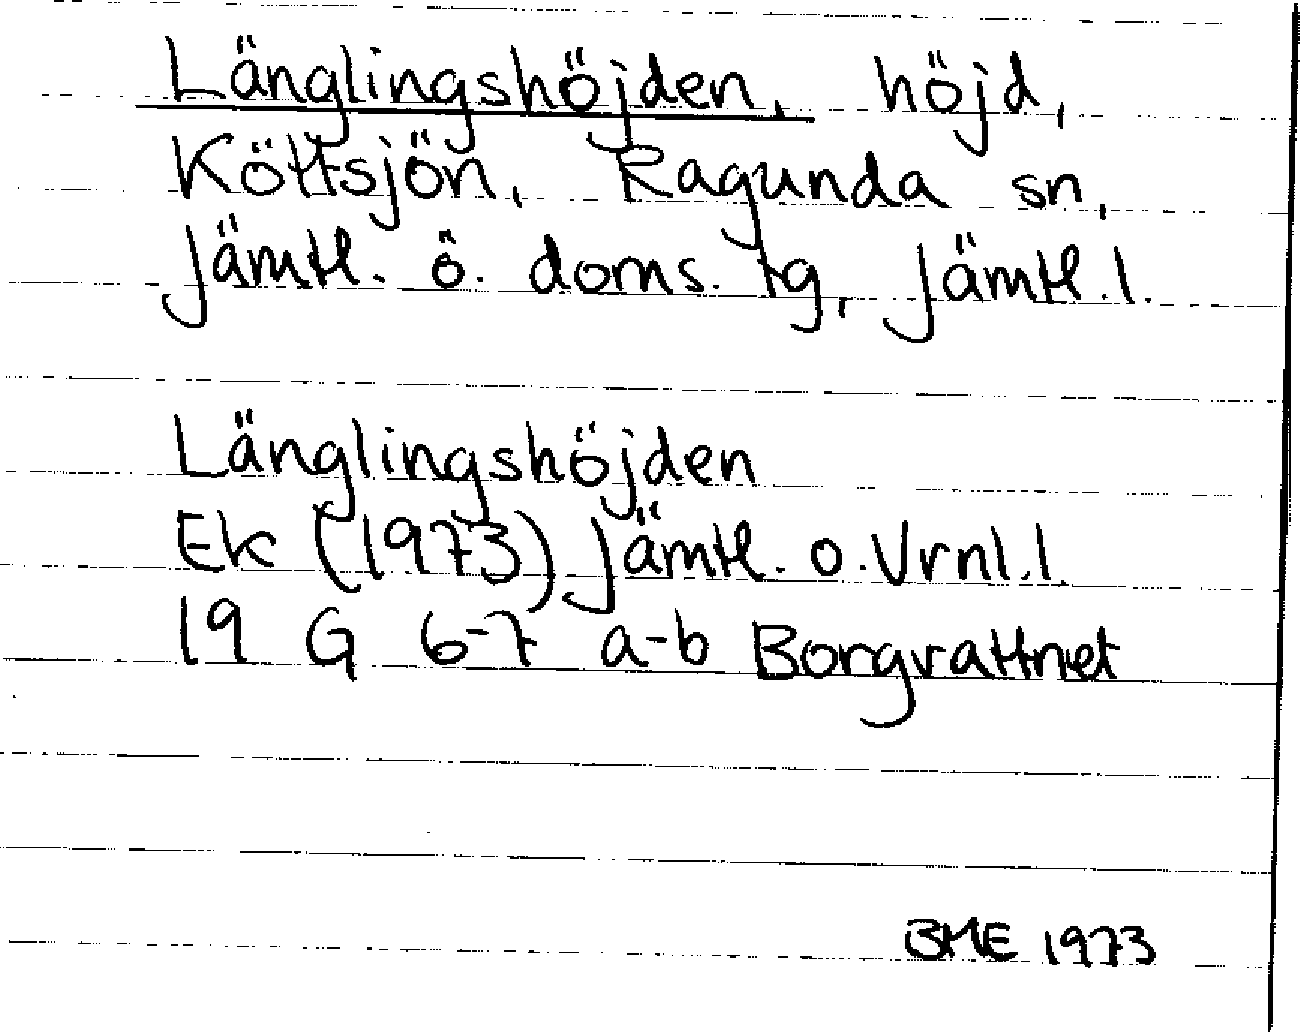 Länglingshöjden, höjd,
Köttsjön, Ragunda sn,
Jämtl. ö. doms. tg, Jämtl. l.
Länglingshöjden
Ek (1973) Jämtl. o. Vrnl. l.
19 G 6-7 a-b Borgvattnet
BME 1973